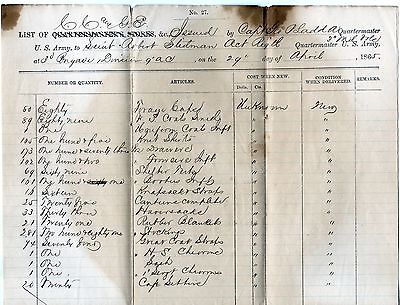 No. 27.
C. C. and G. E.
LIST OF QUARTERMASTER'S STORES, &c., Issued by Capt. Quartermaster
U. S. Army, to Lieut Robert Stedman Act Regtl Quartermaster U. S. Army,
at 3d Brigade Division 9" A.C. on the 29" day of April, 1865.
NUMBER OR QUANTITY. ARTICLES. COST WHEN NEW. CONDITION WHEN DELIVERED. REMARKS.
Dols. Cts.
80 Eighty Forage Caps Unknown New
89 Eighty nine " "
1 One Uniform Coats Inft " "
105 One hundred & five Knit Shirts " "
173 One hundred & seventy three Drawers " "
102 One hundred & two Trowsers Inft " "
69 Sixty nine Shelter Tents " "
101 One hundred & one " Bootees Inft " "
16 Sixteen Knapsacks & Straps " "
25 Twenty five Canteens complete " "
33 Thirty three Haversacks " "
21 Twenty one Rubber Blankets " "
281 Two hundred & eighty one Stockings " "
74 Seventy four Great Coat Straps " "
1 One H. S. Chevrons " "
1 One Sash " "
1 One Sergt Chevrons " "
20 Twenty Caps Letters " "